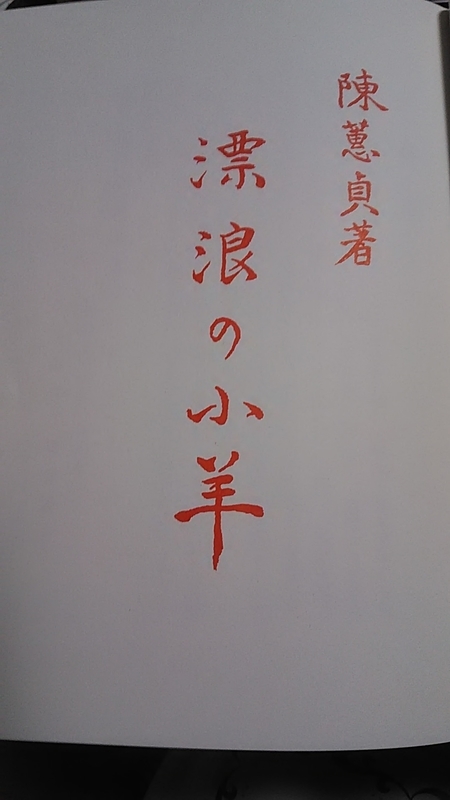 陳蕙貞著
漂浪の小羊